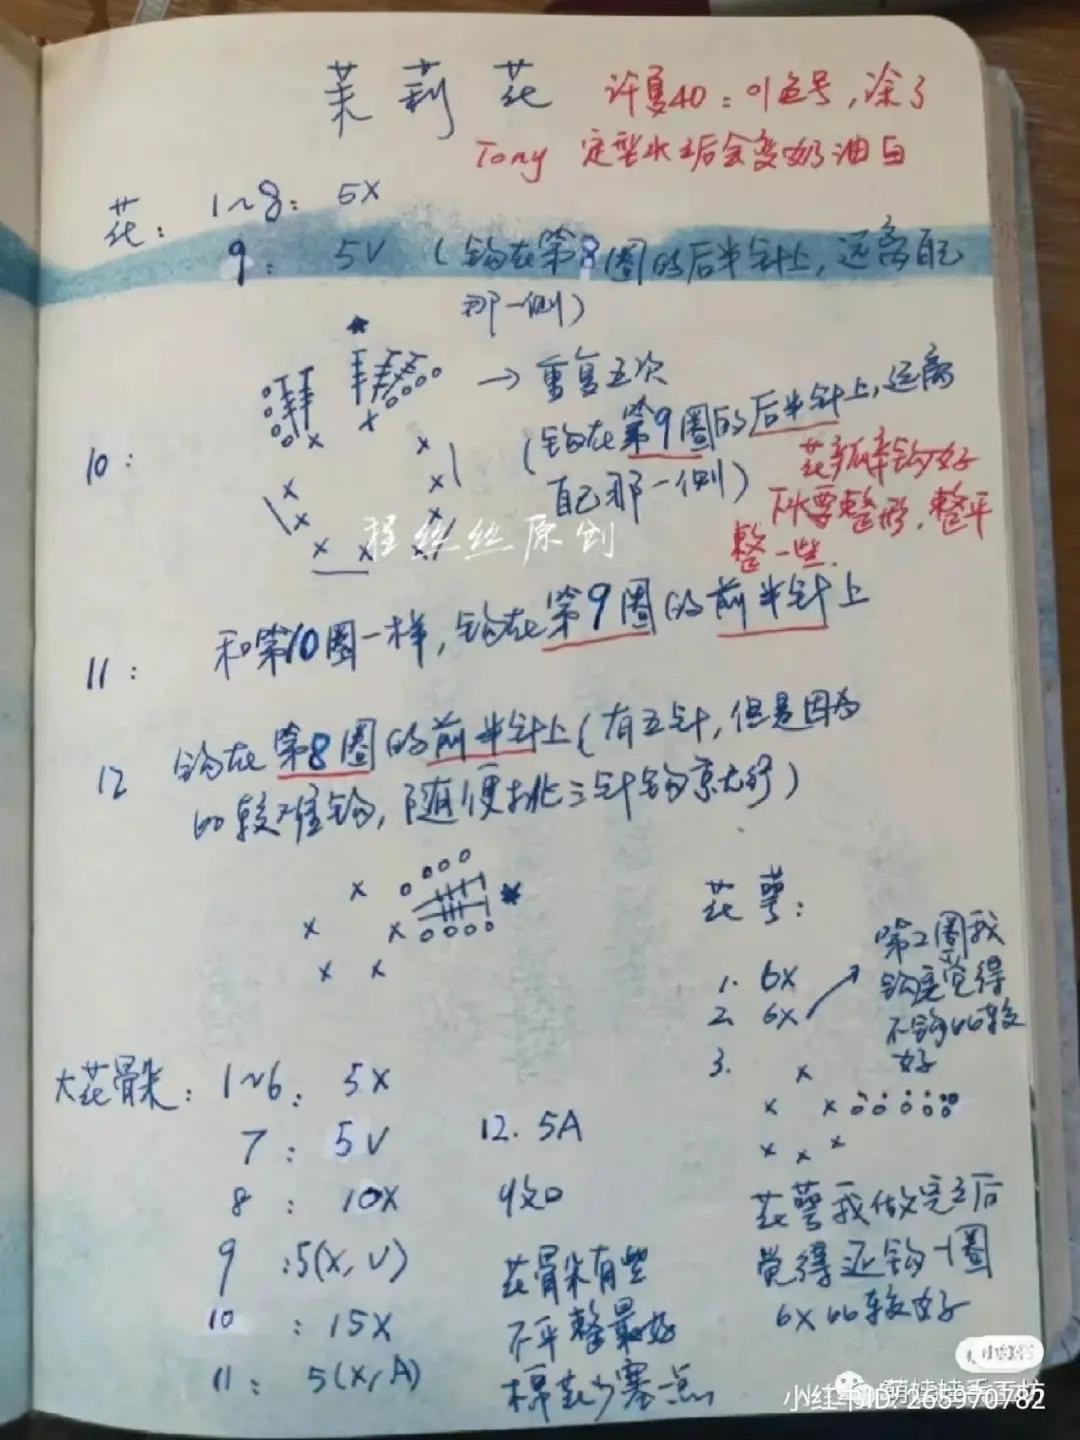 茉莉花
许夏40：01色号，涂了
Tony 定型水之后会变奶油白
花：1~8：5X
9：5V（钩在第8圈的后半针上，远离自己
那一侧）
→重复五次
10：
（钩在第9圈的后半针上，远离
自己那一侧）
花瓣钩好
不要整形，整平
整一些.
程丝丝原创
11：和第10圈一样，钩在第9圈的前半针上
12 钩在第8圈的前半针上（有五针，但是因为
比较难钩，随便挑三针钩就行）
花萼：
1. 6X
2. 6X
第2圈我
钩完觉得
不钩比较
好
3.
花萼我做完之后
觉得还钩一圈
6X比较好
大花骨朵：1~6：5X
7：5V
8：10X
9：5(X,V)
10：15X
11：5(X,A)
12. 5A
收口
花骨朵有些
不平整最好
棉花少塞一点
小红书
萌娃娃手工坊
小红书ID: 265970782